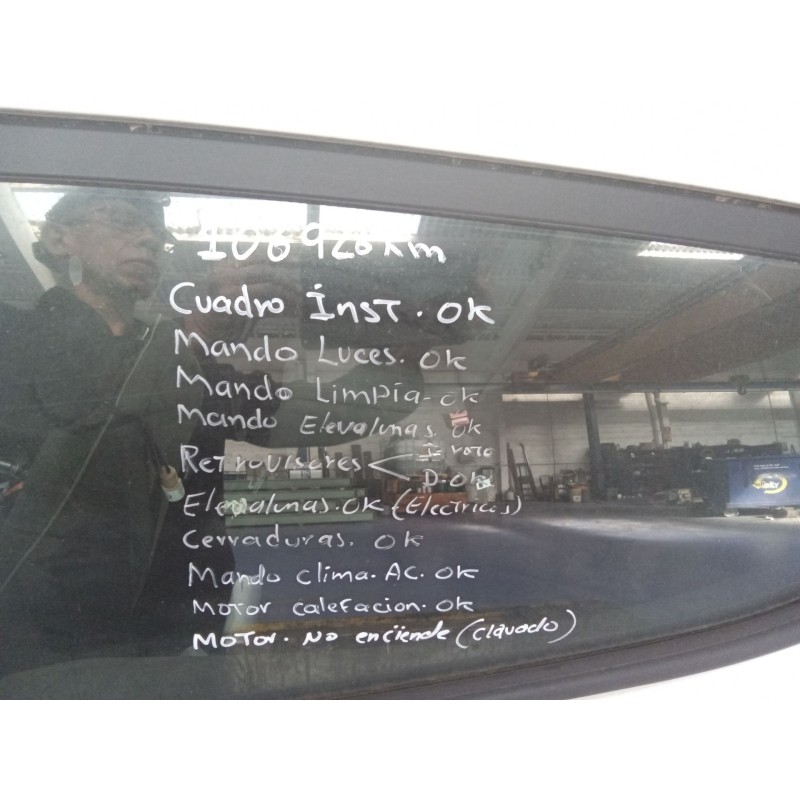 106926 Km
Cuadro Inst. OK
Mando Luces. OK
Mando Limpia-OK
Mando Elevalunas. OK
Retrovisores
I-roto
D-OK
Elevalunas.OK (Electricos)
Cerraduras. OK
Mando clima. AC. OK
Motor calefacion. OK
MOTOR. NO enciende (clavado)